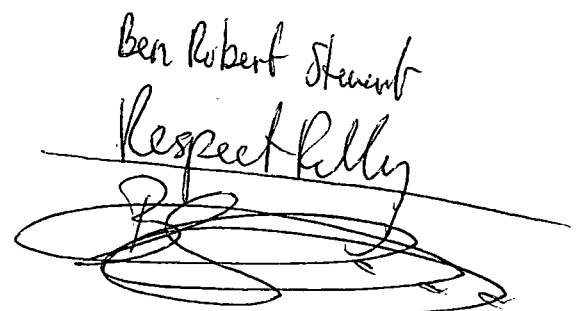 Ben Robert Stewart
Respect Rilly